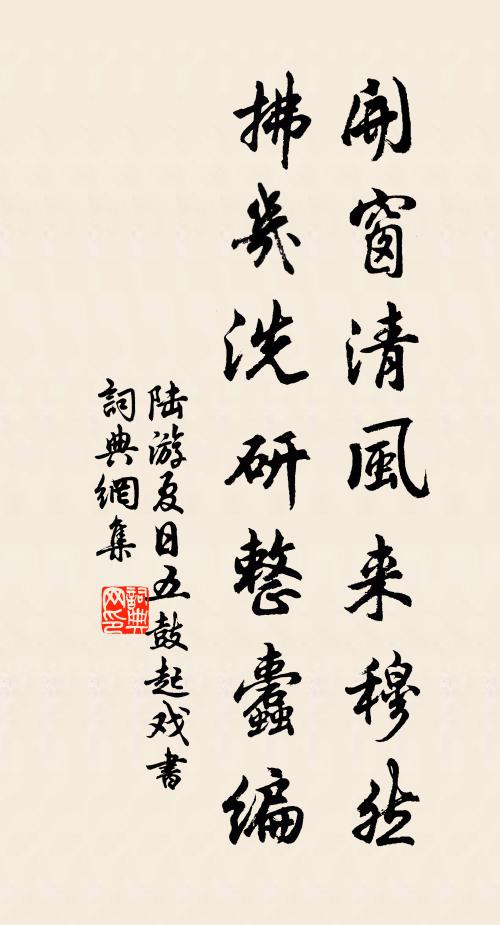 開窗清風来穆然
拂几洗研整蠹編
陆游夏日五鼓起戏書
詞典網集
詞典网印